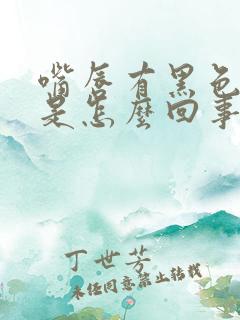 嘴唇有黑色
是怎麼回事
丁世芳
未经同意禁止转载